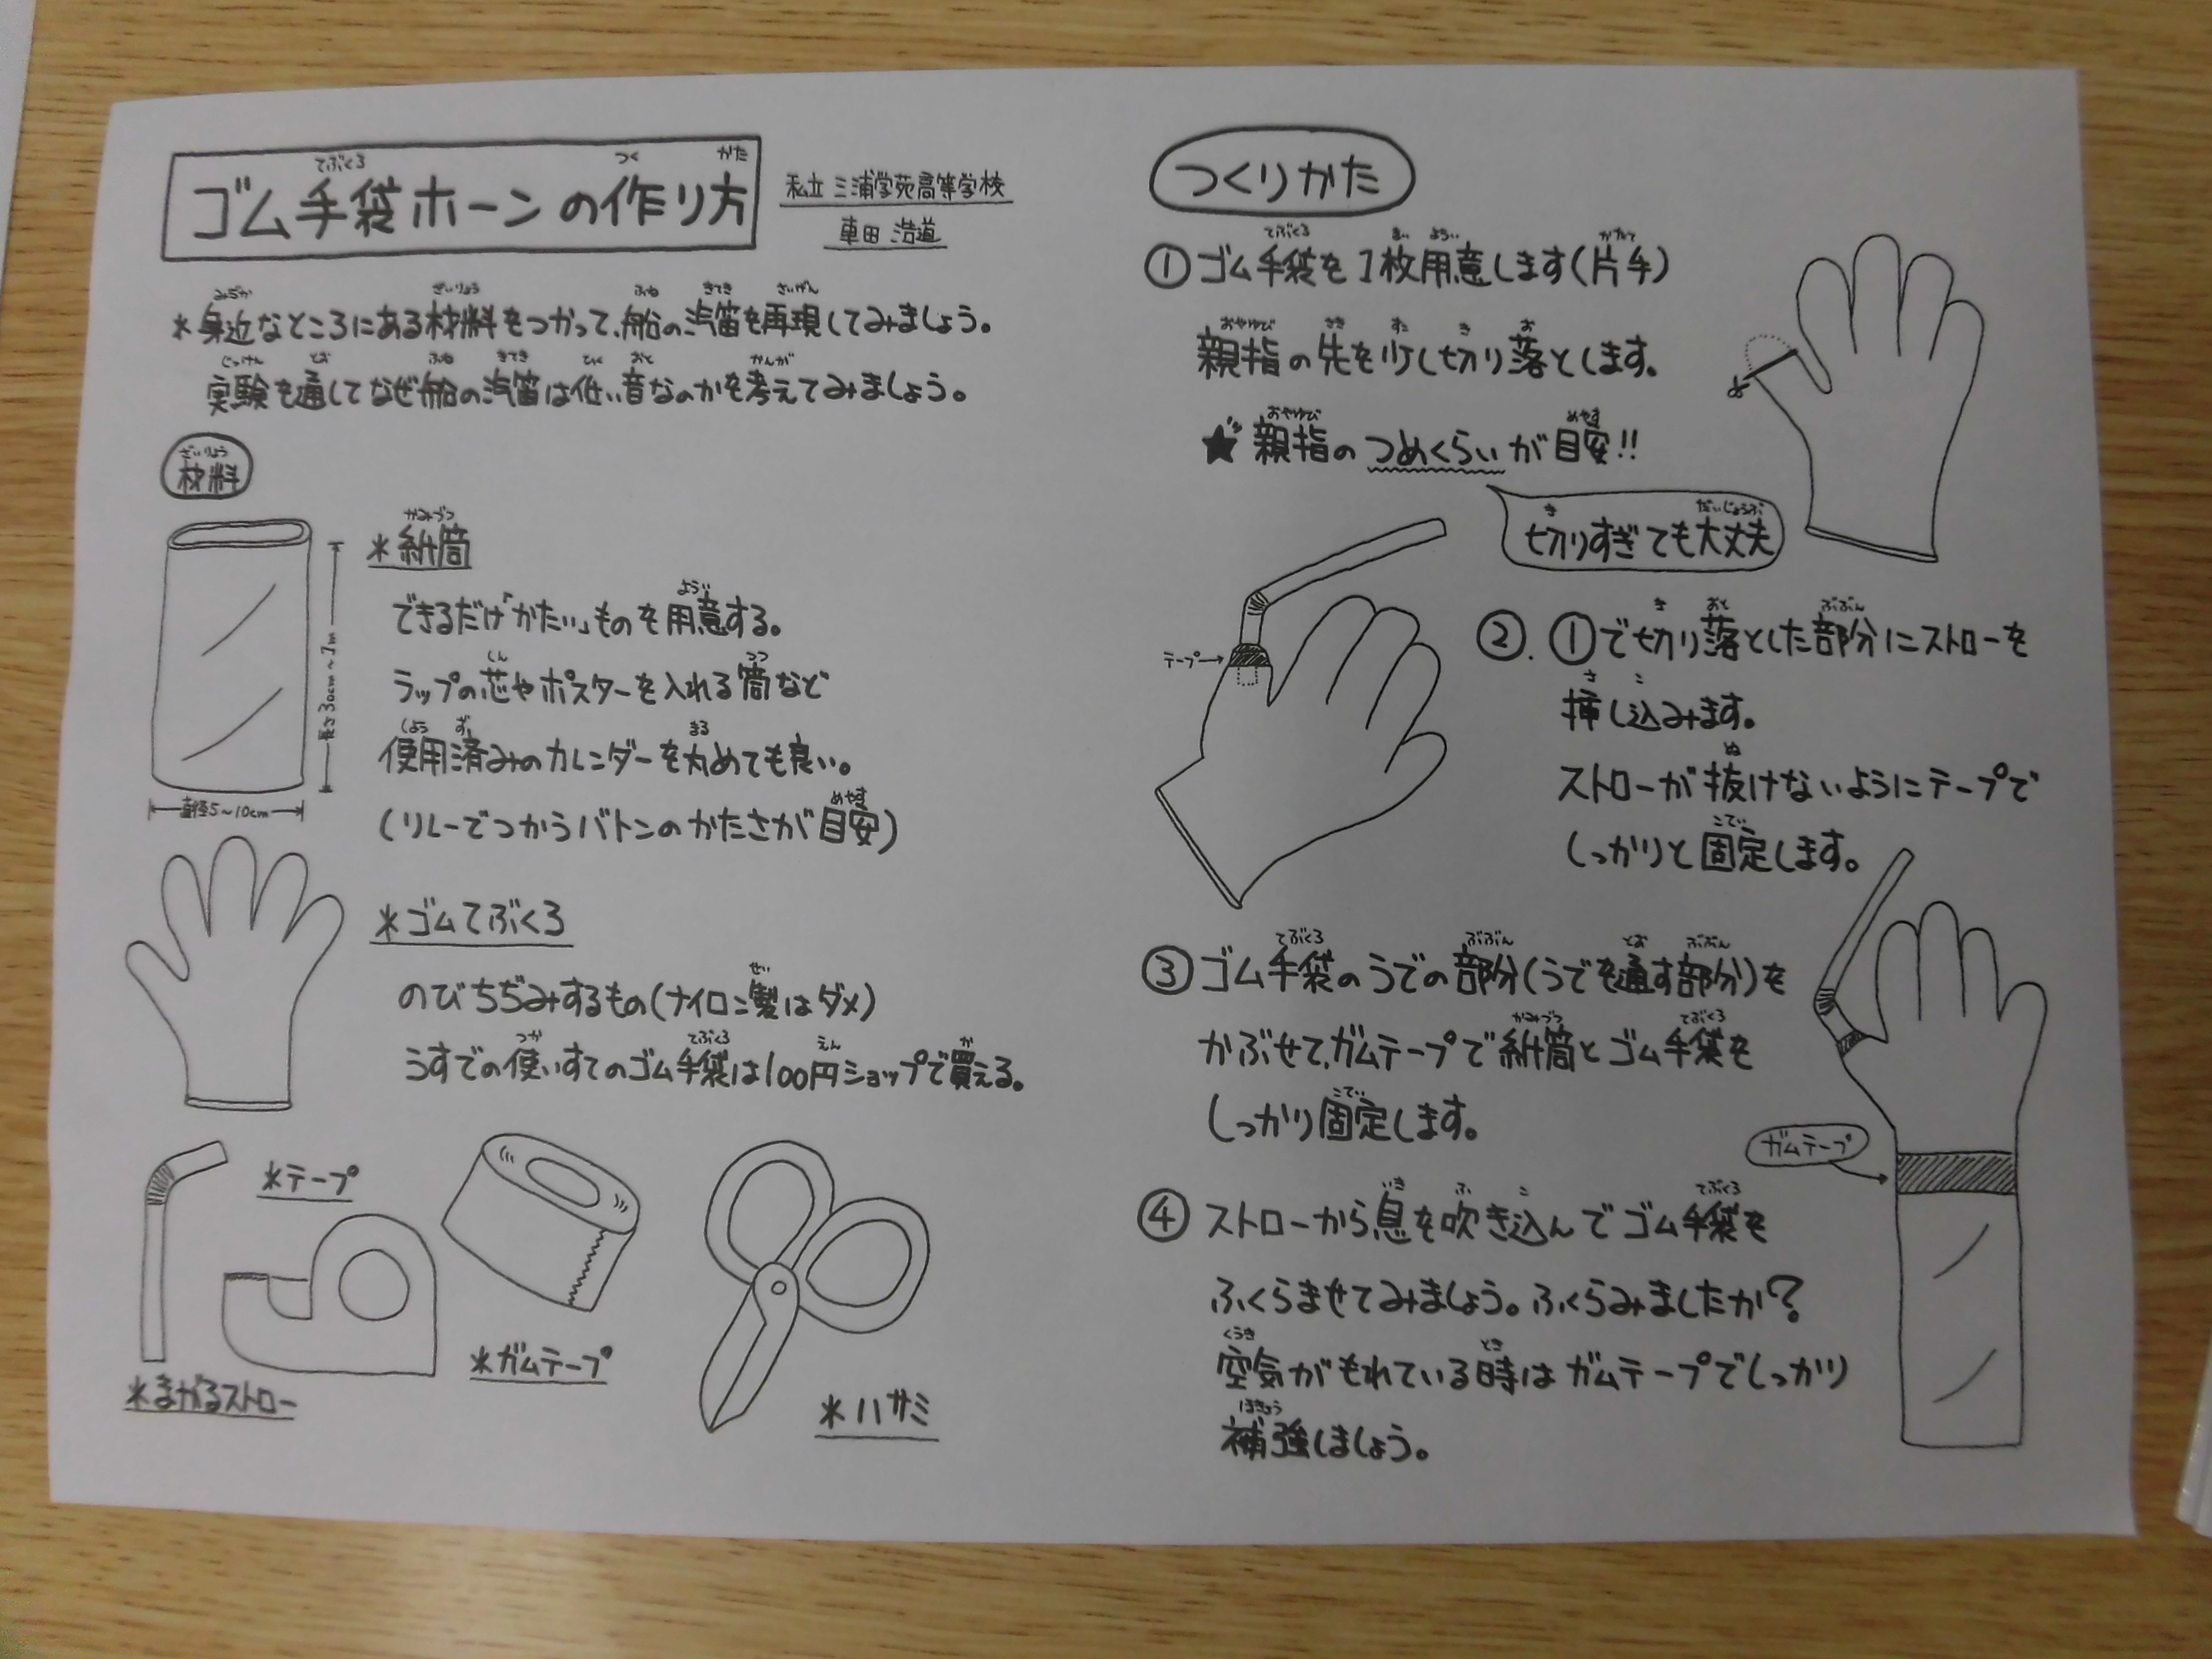 ゴム手袋ホーンの作り方
私立 三浦学苑高等学校
車田 浩道
*身近なところにある材料をつかって、船の汽笛を再現してみましょう。
実験を通してなぜ船の汽笛は低い音なのかを考えてみましょう。
材料
*紙筒
できるだけ「かたい」ものを用意する。
ラップの芯やポスターを入れる筒など
使用済みのカレンダーを丸めても良い。
(リレーでつかうバトンのかたさが目安)
長さ30cm~1m
直径5~10cm
*ゴムてぶくろ
のびちぢみするもの(ナイロン製はダメ)
うすでの使いすてのゴム手袋は100円ショップで買える。
*まがるストロー
*テープ
*ガムテープ
*ハサミ
つくりかた
① ゴム手袋を1枚用意します(片手)
親指の先を少し切り落とします。
★親指のつめくらいが目安!!
切りすぎても大丈夫
テープ→
②. ①で切り落とした部分にストローを
挿し込みます。
ストローが抜けないようにテープで
しっかりと固定します。
③ ゴム手袋のうでの部分(うでを通す部分)を
かぶせて、ガムテープで紙筒とゴム手袋を
しっかり固定します。
ガムテープ
④ ストローから息を吹き込んでゴム手袋を
ふくらませてみましょう。ふくらみましたか?
空気がもれている時はガムテープでしっかり
補強しましょう。